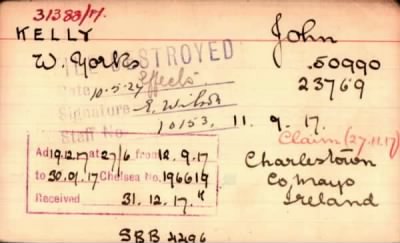 31383/17.
KELLY John
W. Yorks .50990
FILE DESTROYED 23769
Date 10-5-27 Effects.
Signature E. Wilson
Staff No. 10153. 11. 9. 17.
Claim (27.11.17)
Ad 19.12.17 at 27/6 from 12.9.17
to 30.01.17 Chelsea No. 196619
Received 31.12.17.
Charlestown
Co, Mayo
Ireland
SBB 4296